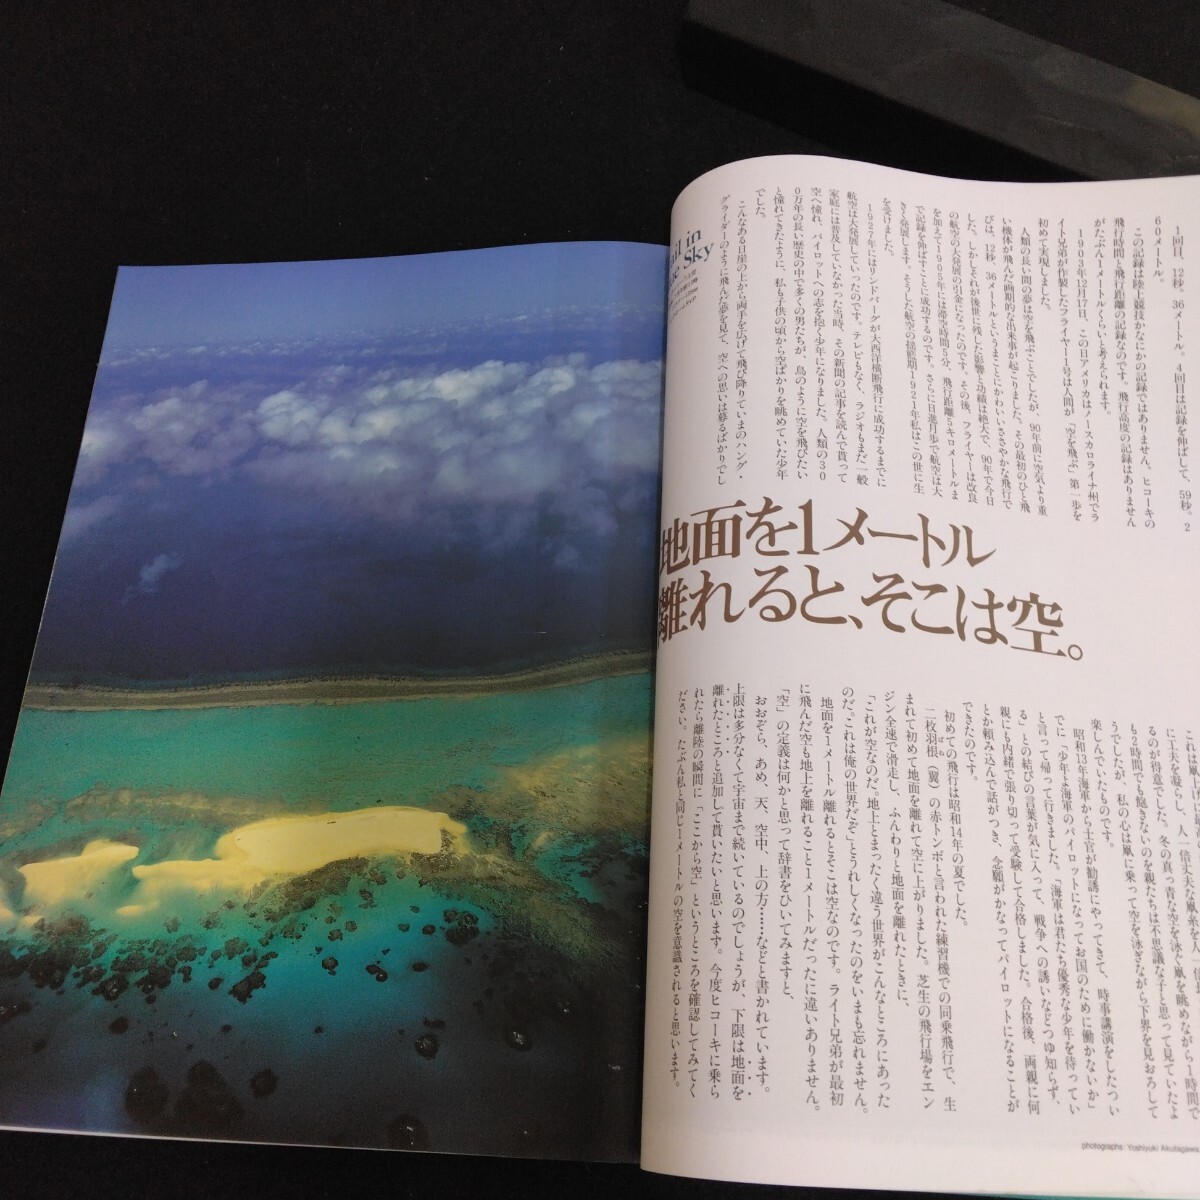 地面を1メートル
離れると、そこは空。
1回目、12秒。36メートル。4回目は記録を伸ばして、59秒。2
60メートル。
この記録は陸上競技かなにかの記録ではありません。ヒコーキの
飛行時間と飛行距離の記録なのです。飛行高度の記録はありません
がたぶん1メートルくらいと考えられます。
1903年12月17日、この日アメリカはノースカロライナ州でラ
イト兄弟が作製したフライヤー1号は人間が「空を飛ぶ」第一歩を
初めて実現しました。
人類の長い間の夢は空を飛ぶことでしたが、90年前に空気より重
い機体が飛んだ画期的な出来事が起こりました。その最初のひと飛
びは、12秒、36メートルというまことにかわいいささやかな飛行で
した。しかしそれが後世に残した影響と功績は絶大で、90年で今日
の航空の大発展の引金になったのです。その後、フライヤーは改良
を加えて1905年には滞空時間5分、飛行距離5キロメートルま
で記録を伸ばすことに成功するのです。さらに日進月歩で航空は大
きく発展します。そうした航空の揺籃期1921年私はこの世に生
を受けました。
1927年にはリンドバーグが大西洋横断飛行に成功するまでに
航空は大発展していったのです。テレビもなく、ラジオもまだ一般
家庭には普及していなかった当時、その新聞の記事を読んで貰って
空へ憧れ、パイロットへの志を抱く少年になりました。人類の30
0万年の長い歴史の中で多くの男たちが、鳥のように空を飛びたい
と憧れてきたように、私も子供の頃から空ばかりを眺めていた少年
でした。
こんなある日崖の上から両手を広げて飛び降りていまのハング・
グライダーのように飛んだ夢を見て、空への思いは募るばかりでし
ail in
Sky
に工夫を凝らし、人一倍丈夫な凧糸を
るのが得意でした。冬の真っ青な空を泳ぐ凧を眺めながら1時間で
も2時間でも飽きないのを親たちは不思議な子と思って見ていたよ
うでしたが、私の心は凧に乗って空を泳ぎながら下界を見おろして
楽しんでいたものです。
昭和13年海軍から士官が勧誘にやってきて、時事講演をしたつい
でに「少年よ海軍のパイロットになってお国のために働かないか」
と言って帰って行きました。「海軍は君たち優秀な少年を待ってい
る」との結びの言葉が気に入って、戦争への誘いなどつゆ知らず、
親にも内緒で張り切って受験して合格しました。合格後、両親に何
とか頼み込んで話がつき、念願がかなってパイロットになることが
できたのです。
初めての飛行は昭和14年の夏でした。
二枚羽根（翼）の赤トンボと言われた練習機での同乗飛行で、生
まれて初めて地面を離れて空に上がりました。芝生の飛行場をエン
ジン全速で滑走し、ふんわりと地面を離れたときに、
「これが空なのだ。地上とまったく違う世界がこんなところにあった
のだ、これは俺の世界だぞ」とうれしくなったのをいまも忘れません。
地面を1メートル離れるとそこは空なのです。ライト兄弟が最初
に飛んだ空も地上を離れること1メートルだったに違いありません。
「空」の定義は何かと思って辞書をひいてみますと、
おおぞら、あめ、天、空中、上の方……などと書かれています。
上限は多分なくて宇宙まで続いているのでしょうが、下限は地面を
離れたところと追加して貰いたいと思います。今度ヒコーキに乗ら
れたら離陸の瞬間に「ここから空」というところを確認してみてく
ださい。たぶん私と同じ1メートルの空を意識されると思います。
photographs: Yoshiyuki Akutagawa